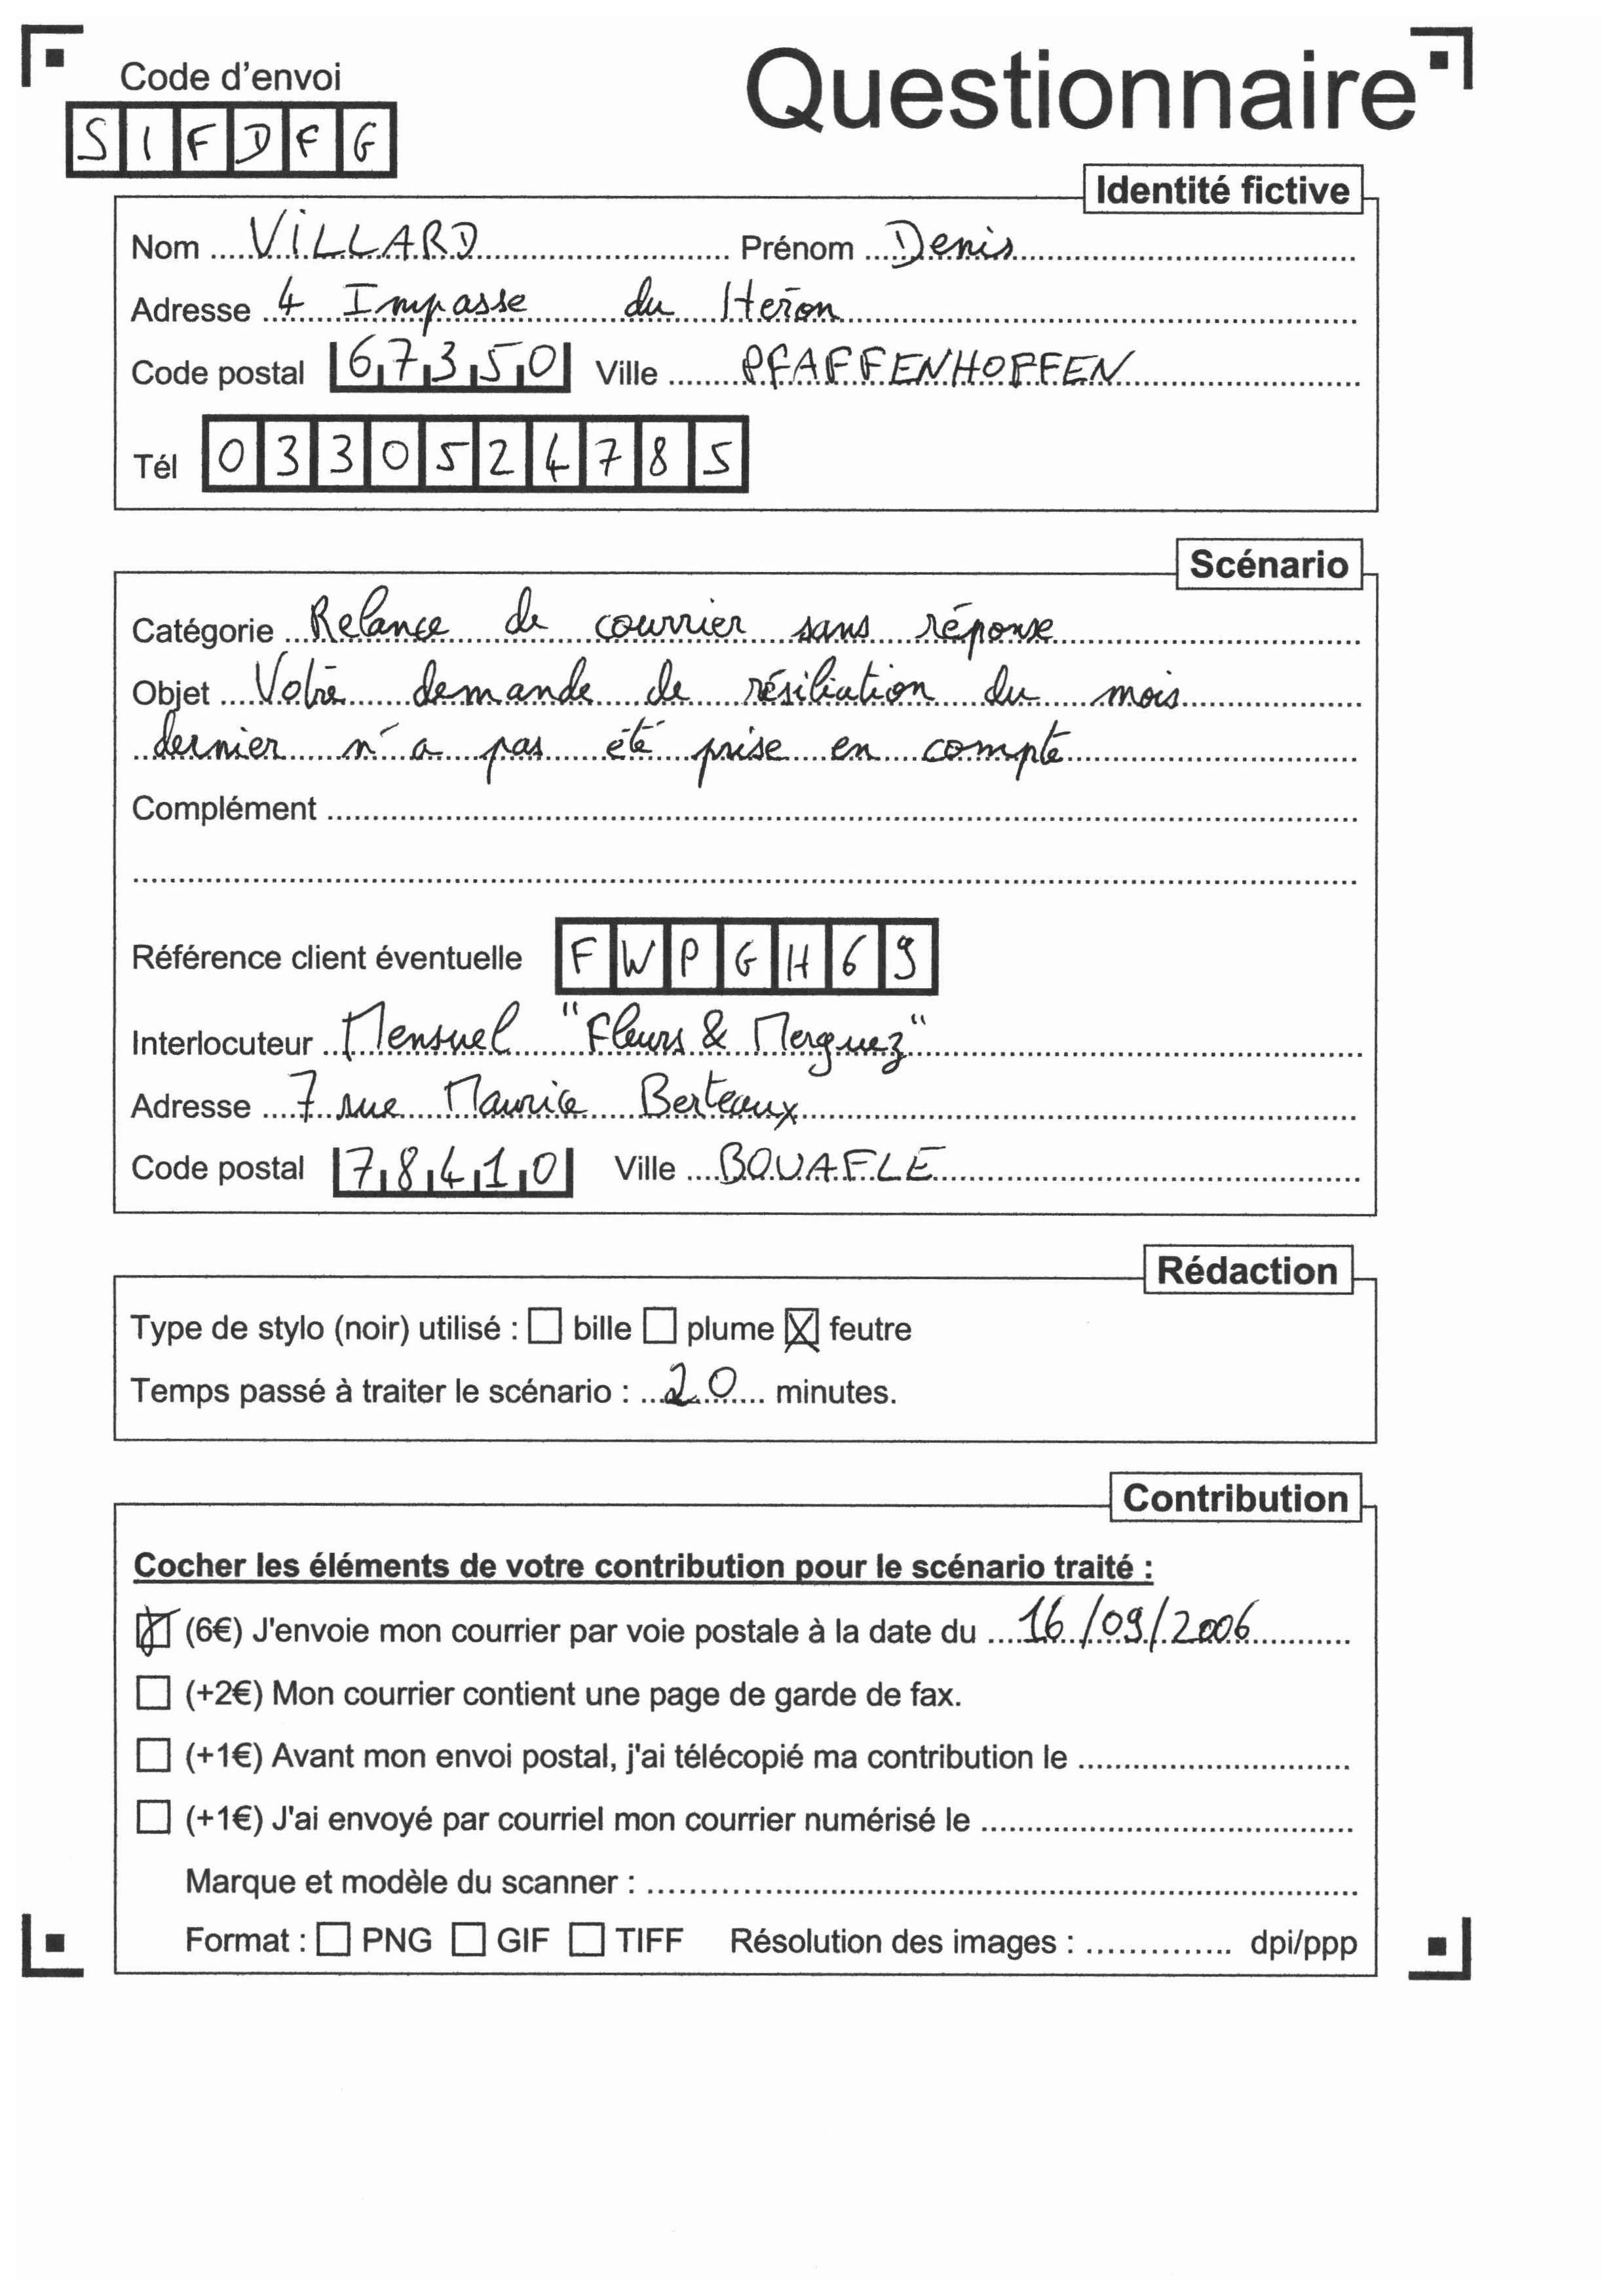 Code d'envoi
Questionnaire
S I F D F G
Identité fictive
Nom VILLARD Prénom Denis
Adresse 4 Impasse du Héron
Code postal 67350 Ville PFAFFENHOFFEN
Tél 0330524785
Scénario
Catégorie Relance de courrier sans réponse
Objet Votre demande de résiliation du mois
dernier n'a pas été prise en compte
Complément
Référence client éventuelle F W P G H 6 9
Interlocuteur Mensuel "Fleurs & Merguez"
Adresse 7 rue Maurice Berteaux
Code postal 78410 Ville BOUAFLE
Rédaction
Type de stylo (noir) utilisé : ☐ bille ☐ plume ☒ feutre
Temps passé à traiter le scénario : 20 minutes.
Contribution
Cocher les éléments de votre contribution pour le scénario traité :
☒ (6€) J'envoie mon courrier par voie postale à la date du 16/09/2006
☐ (+2€) Mon courrier contient une page de garde de fax.
☐ (+1€) Avant mon envoi postal, j'ai télécopié ma contribution le
☐ (+1€) J'ai envoyé par courriel mon courrier numérisé le
Marque et modèle du scanner :
Format : ☐ PNG ☐ GIF ☐ TIFF Résolution des images : dpi/ppp